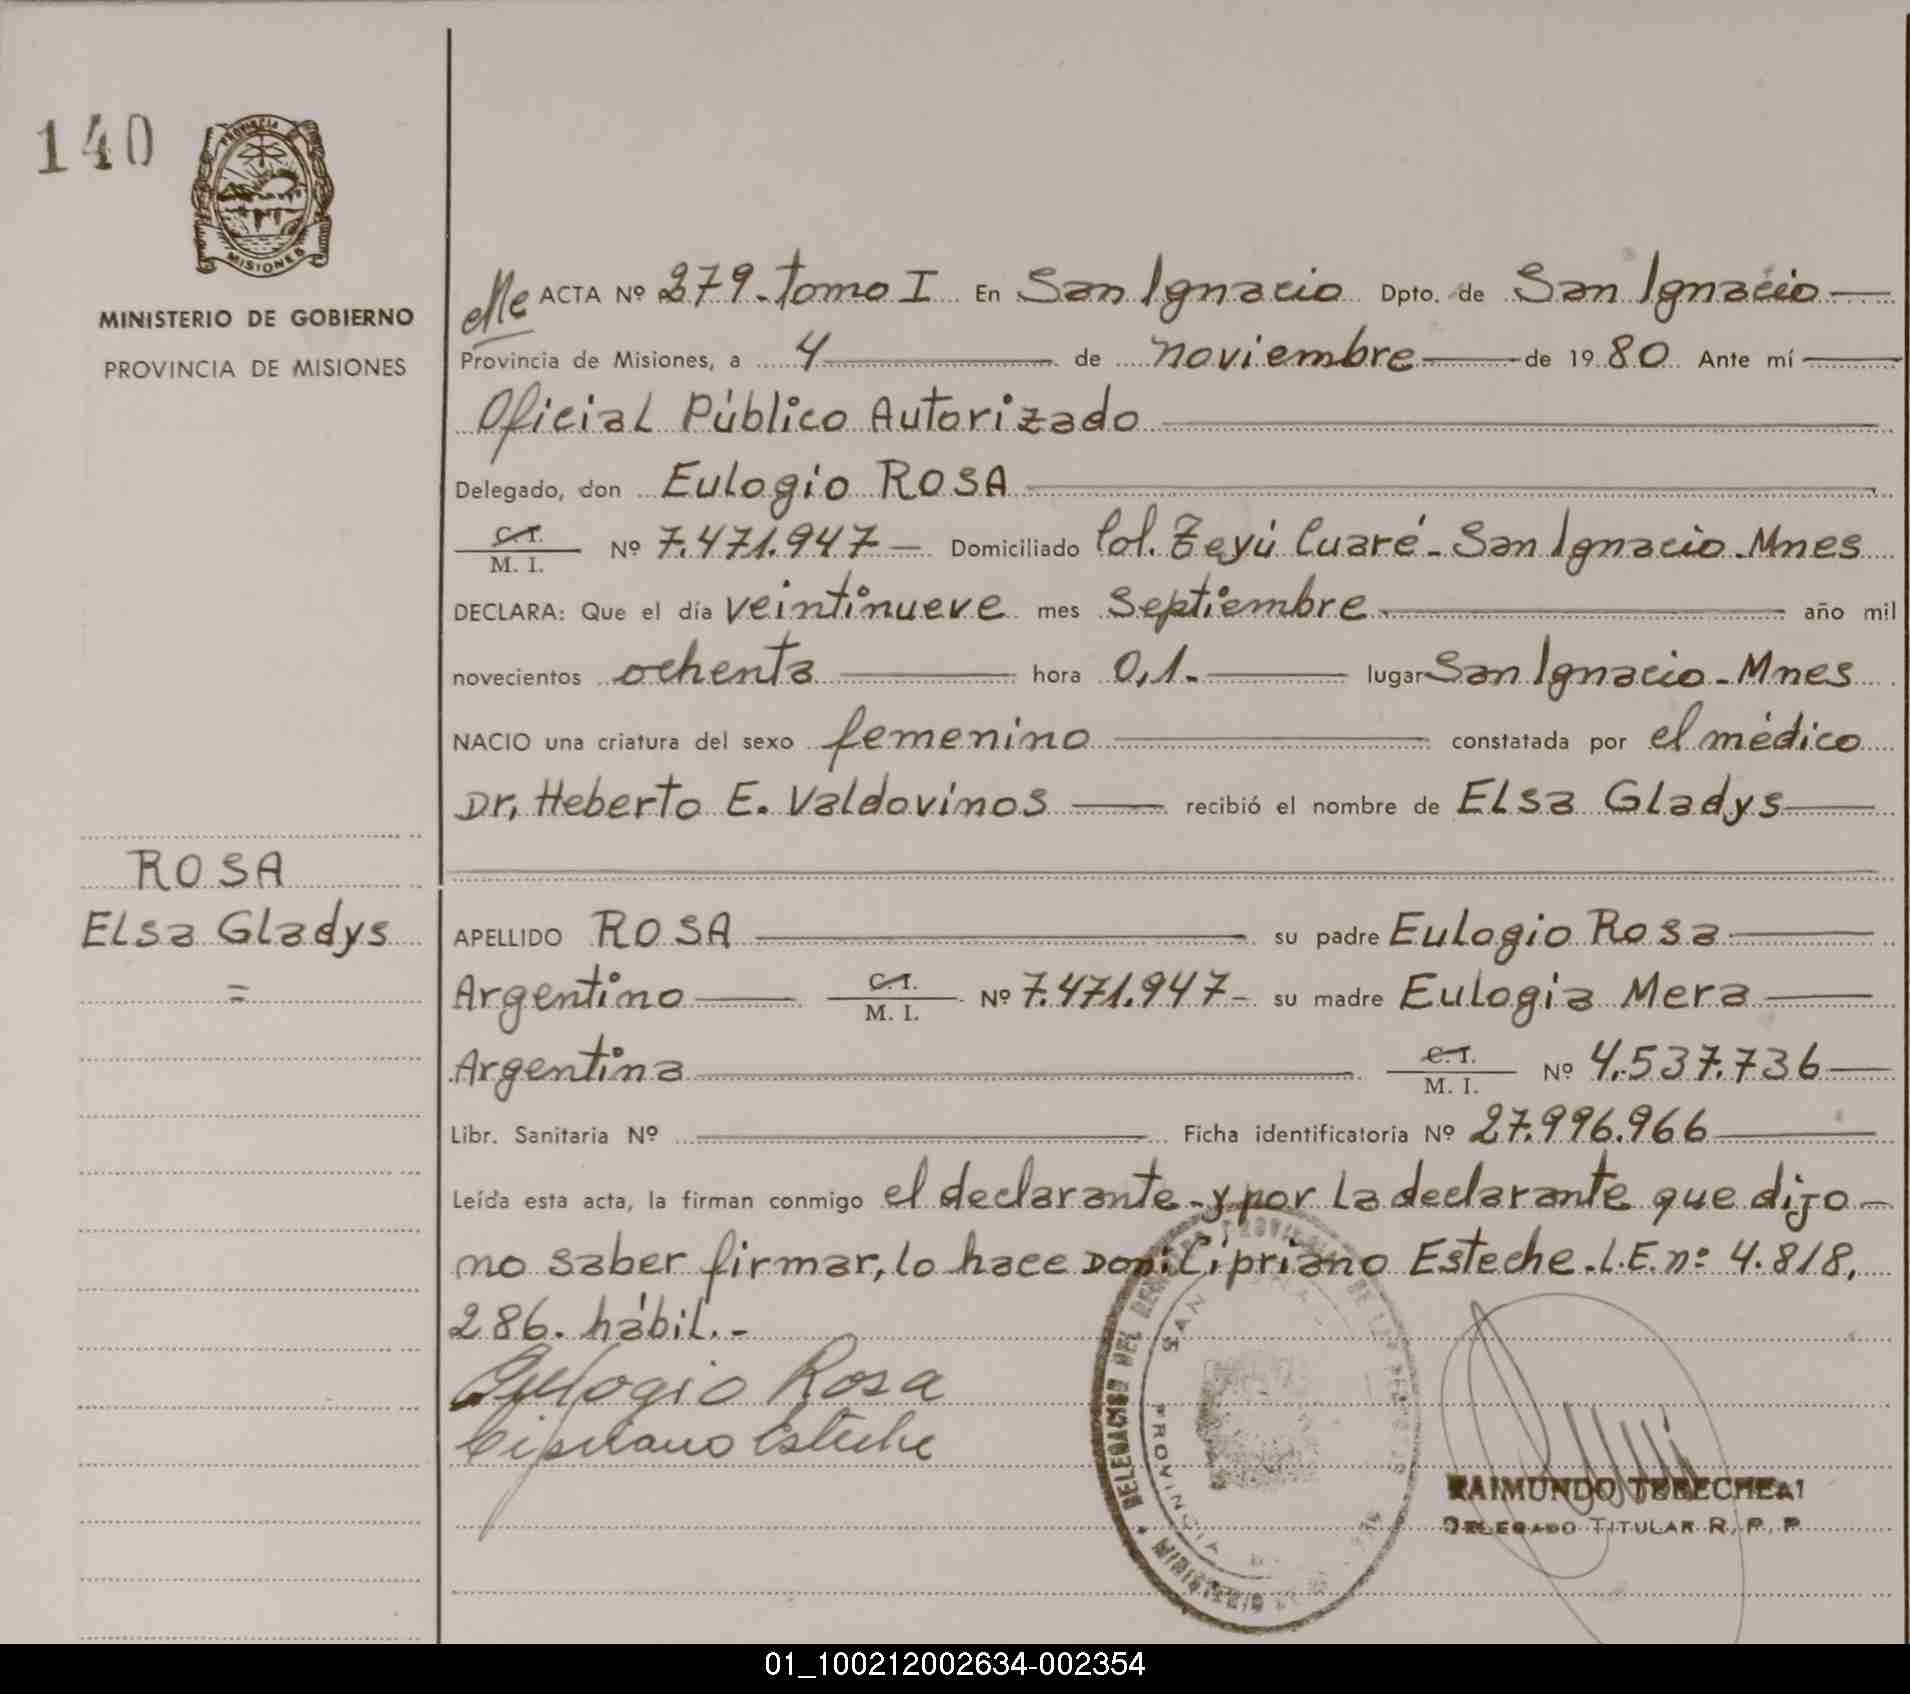 140
PROVINCIA
MISIONES
MINISTERIO DE GOBIERNO
PROVINCIA DE MISIONES
ROSA
Elsa Gladys
=
ACTA Nº 279. tomo I En San Ignacio Dpto. de San Ignacio
Provincia de Misiones, a 4 de noviembre de 1980 Ante mí
Oficial Público Autorizado
Delegado, don Eulogio ROSA
C.I.
M. I. Nº 7.471.947 Domiciliado Col. Teyú Cuaré - San Ignacio - Mnes
DECLARA: Que el día veintinueve mes Septiembre año mil
novecientos ochenta hora 0,1.- lugar San Ignacio - Mnes
NACIO una criatura del sexo femenino constatada por el médico
Dr, Heberto E. Valdovinos recibió el nombre de Elsa Gladys
APELLIDO ROSA su padre Eulogio Rosa
Argentino C.I. M. I. Nº 7.471.947 su madre Eulogia Mera
Argentina C.I. M. I. Nº 4.537.736
Libr. Sanitaria Nº Ficha identificatoria Nº 27.996.966
Leída esta acta, la firman conmigo el declarante - y por la declarante que dijo
no saber firmar, lo hace Don: Cipriano Esteche. L.E. nº 4.818.
286. hábil.-
Eulogio Rosa
Cipriano Esteche
DELEGACION DEL
SAN
PROVINCIA
RAIMUNDO
DELEGADO TITULAR R. P. P.
01_100212002634-002354